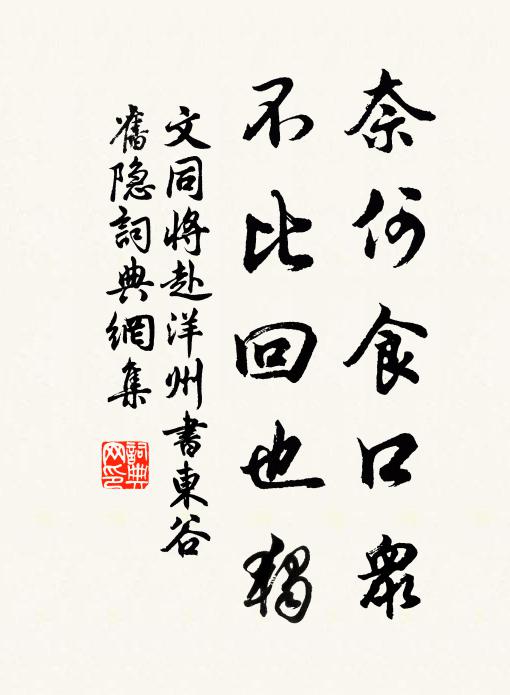 奈何食口衆
不比回也獨
文同將赴洋州書東谷
舊隐詞典網集
詞典网印